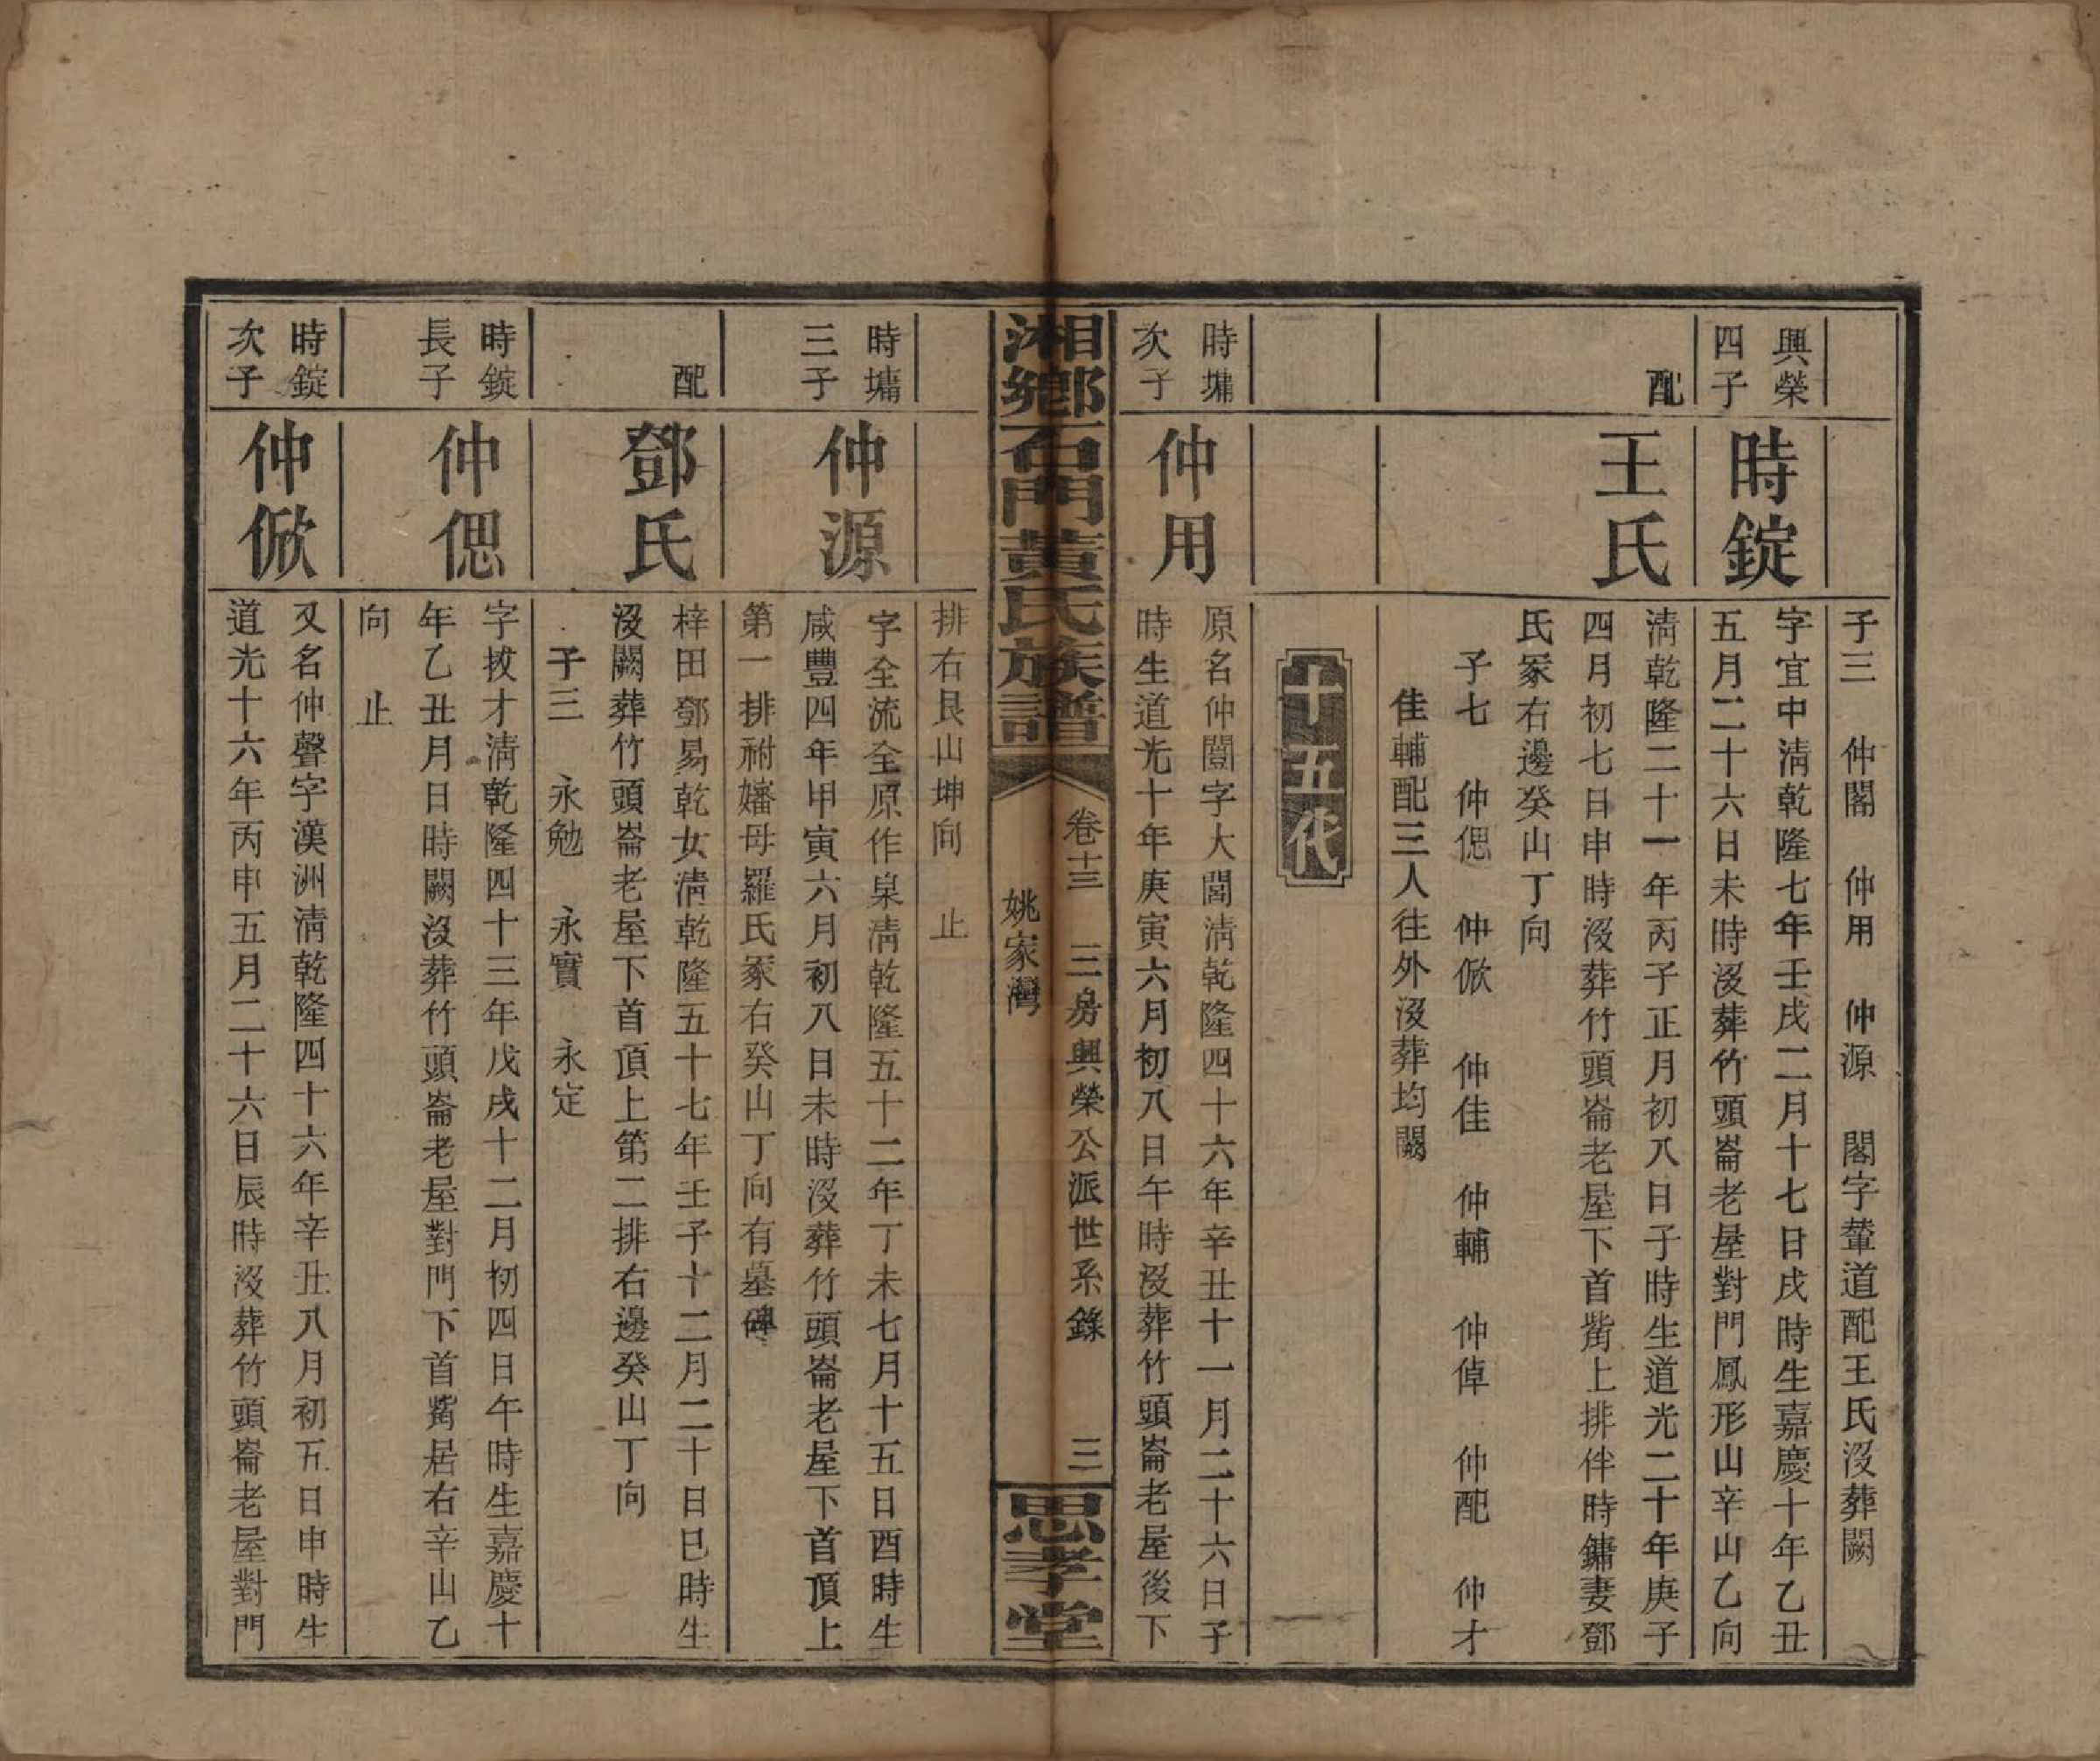 子三　仲閣　仲用　仲源　閣字輦道配王氏沒葬闕
興榮
四子
時錠
字宜中淸乾隆七年壬戌二月十七日戌時生嘉慶十年乙丑
五月二十六日未時沒葬竹頭崙老屋對門鳳形山辛山乙向
配
王氏
淸乾隆二十一年丙子正月初八日子時生道光二十年庚子
四月初七日申時沒葬竹頭崙老屋下首嘴上排伴時鏞妻鄧
氏冢右邊癸山丁向
子七　仲偲　仲俽　仲佳　仲輔　仲倬　仲配　仲才
佳輔配三人往外沒葬均闕
十五代
時墉
次子
仲用
原名仲闓字大閶淸乾隆四十六年辛丑十一月二十六日子
時生道光十年庚寅六月初八日午時沒葬竹頭崙老屋後下
湘鄉石門黃氏族譜
卷十三　三房興榮公派世系錄　三
姚家灣
思孝堂
排右艮山坤向　止
時墉
三子
仲源
字全流全原作泉淸乾隆五十二年丁未七月十五日酉時生
咸豐四年甲寅六月初八日未時沒葬竹頭崙老屋下首頂上
第一排祔嬸母羅氏冢右癸山丁向有墓碑
配
鄧氏
梓田鄧易乾女淸乾隆五十七年壬子十二月二十日巳時生
沒闕葬竹頭崙老屋下首頂上第二排右邊癸山丁向
子三　永勉　永實　永定
時錠
長子
仲偲
字拔才淸乾隆四十三年戊戌十二月初四日午時生嘉慶十
年乙丑月日時闕沒葬竹頭崙老屋對門下首嘴居右辛山乙
向　止
時錠
次子
仲俽
又名仲聲字漢洲淸乾隆四十六年辛丑八月初五日申時生
道光十六年丙申五月二十六日辰時沒葬竹頭崙老屋對門